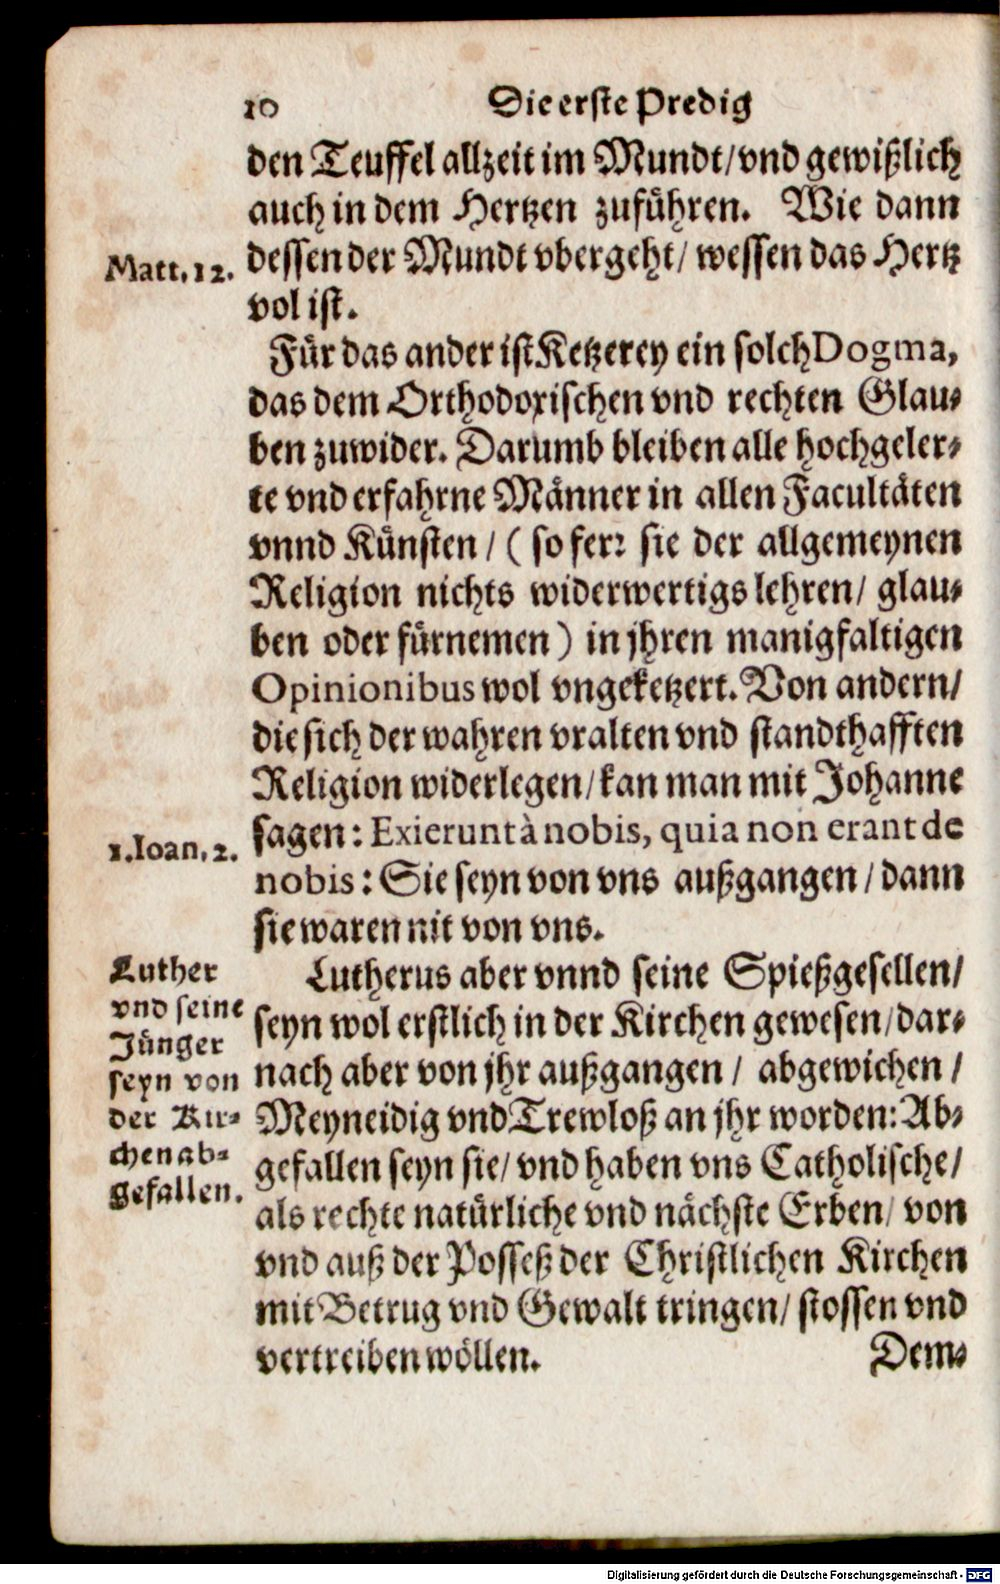 10 Die erste Predig
den Teuffel allzeit im Mundt/vnd gewißlich
auch in dem Hertzen zuführen. Wie dann
Matt. 12.
dessen der Mundt vbergeht/ wessen das Hertz
vol ist.
Für das ander ist Ketzerey ein solch Dogma,
das dem Orthodoxischen vnd rechten Glau-
ben zuwider. Darumb bleiben alle hochgeler-
te vnd erfahrne Männer in allen Facultäten
vnnd Künsten/ (so ferr sie der allgemeynen
Religion nichts widerwertigs lehren/ glau-
ben oder fürnemen) in jhren manigfaltigen
Opinionibus wol vngeketzert. Von andern/
die sich der wahren vralten vnd standthafften
Religion widerlegen/kan man mit Johanne
1. Ioan. 2.
sagen: Exierunt à nobis, quia non erant de
nobis: Sie seyn von vns außgangen/dann
sie waren nit von vns.
Luther
vnd seine
Jünger
seyn von
der Kir-
chen ab-
gefallen.
Lutherus aber vnnd seine Spießgesellen/
seyn wol erstlich in der Kirchen gewesen/dar-
nach aber von jhr außgangen/ abgewichen/
Meyneidig vnd Trewloß an jhr worden: Ab-
gefallen seyn sie/ vnd haben vns Catholische/
als rechte natürliche vnd nächste Erben/ von
vnd auß der Posseß der Christlichen Kirchen
mit Betrug vnd Gewalt tringen/ stossen vnd
vertreiben wöllen. Dem-
Digitalisierung gefördert durch die Deutsche Forschungsgemeinschaft - DFG